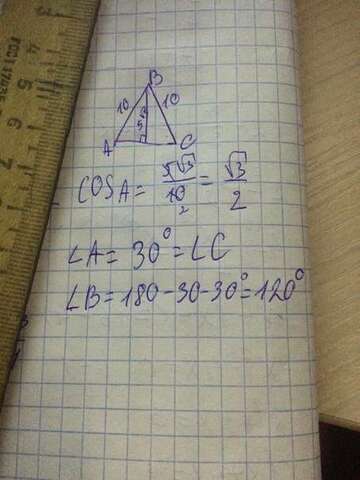 B
10 10
A C
COS A = 5√3 / 10 2 = √3 / 2
∠A = 30° = ∠C
∠B = 180 - 30 - 30° = 120°
3 4 5 6 7 8 9